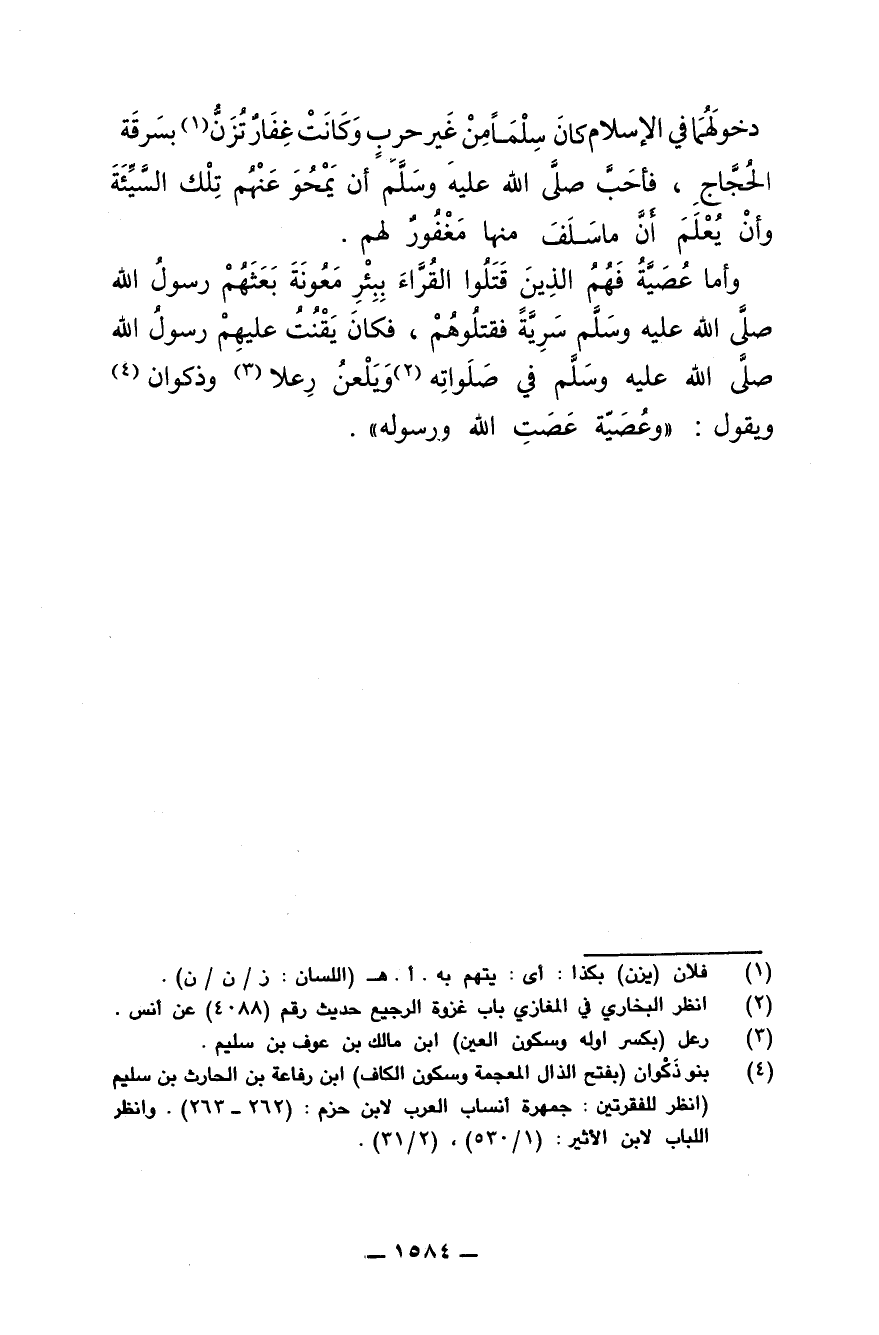 دخولَهُمَا في الإسلام كانَ سِلْمَـاً مِنْ غَير حربٍ وَكَانَتْ غِفَارٌ تُزَنُّ(١) بسَرقَة
الحُجَّاجِ ، فأحَبَّ صلَّى الله عليه وسَلَّم أن يَمْحُوَ عَنْهُم تِلْك السَّيِّئَةَ
وأنْ يُعْلَمَ أَنَّ ماسَـلَفَ منها مَغْفُورٌ لهم .
وأما عُصَيَّةُ فَهُمُ الذِينَ قَتَلُوا القُرَّاءَ بِبِئْرِ مَعُونَةَ بَعَثَهُمْ رسولُ الله
صلَّى الله عليه وسَلَّم سَرِيَّةً فقتلُوهُمْ ، فكانَ يَقْنُتُ عليهِمْ رسولُ الله
صلَّى الله عليه وسَلَّم في صَلَواتِه (٢) وَيَلْعنُ رِعلا (٣) وذكوان (٤)
ويقول : «وعُصَيّة عَصَتِ الله ورسوله» .
(١) فلان (يزن) بكذا : أى : يتهم به . أ . هـ (اللسان : ز / ن / ن) .
(٢) انظر البخاري في المغازي باب غزوة الرجيع حديث رقم (٤٠٨٨) عن أنس .
(٣) رعل (بكسر اوله وسكون العين) ابن مالك بن عوف بن سليم .
(٤) بنو ذَكْوان (بفتح الذال المعجمة وسكون الكاف) ابن رفاعة بن الحارث بن سليم
(انظر للفقرتين : جمهرة أنساب العرب لابن حزم : (٢٦٢ - ٢٦٣) . وانظر
اللباب لابن الأثير : (٥٣٠/١) ، (٣١/٢) .
— ١٥٨٤ —